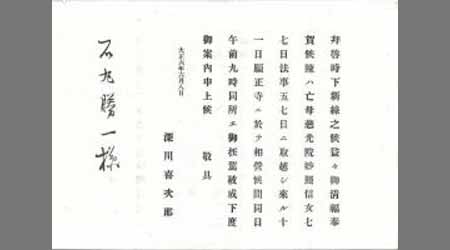 拜啓時下新綠之候益々御淸福奉
賀候陳ハ亡母慈光院妙照信女七
七日法事五七日ニ取越シ來ル十
一日願正寺ニ於テ相營候間同日
午前九時同所ェ御抂駕被成下度
御案內申上候　敬具
大正六年六月八日
深川喜次郎
石丸勝一様